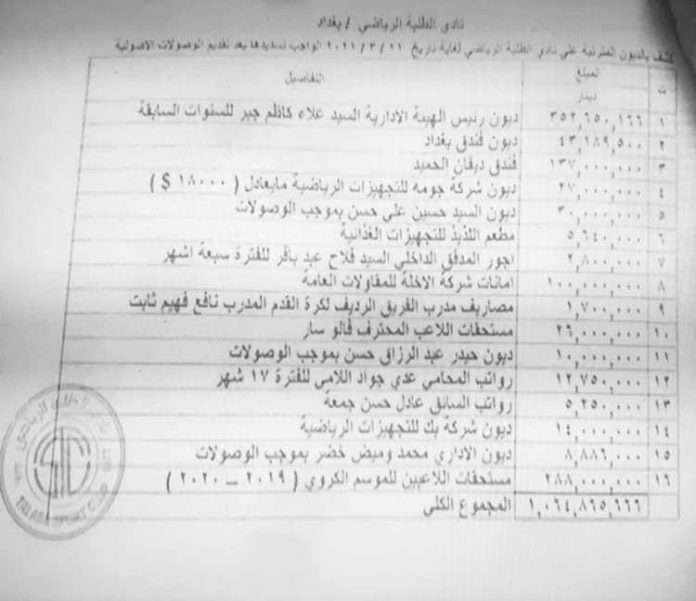 نادي الطلبة الرياضي / بغداد
كشف بالديون المترتبة على نادي الطلبة الرياضي لغاية تاريخ ١١ / ٣ / ٢٠٢١ الواجب تسديدها بعد تقديم الوصولات الاصولية
ت المبلغ التفاصيل
دينار
١ ٣٥٢,٦٥٠,١٦٦ ديون رئيس الهيئة الادارية السيد علاء كاظم جبر للسنوات السابقة
٢ ٤٣,١٨٩,٥٠٠ ديون فندق بغداد
٣ ١٣٧,٠٠٠,٠٠٠ فندق ديفان الحميد
٤ ٢٧,٠٠٠,٠٠٠ ديون شركة جومه للتجهيزات الرياضية مايعادل ( ١٨٠٠٠ $ )
٥ ٣٠,٠٠٠,٠٠٠ ديون السيد حسين علي حسن بموجب الوصولات
٦ ٥,٦٤٠,٠٠٠ مطعم اللذيذ للتجهيزات الغذائية
٧ ٢,٨٠٠,٠٠٠ اجور المدقق الداخلي السيد فلاح عبد باقر للفترة سبعة اشهر
٨ ١٠٠,٠٠٠,٠٠٠ امانات شركة الاخلة للمقاولات العامة
٩ ١,٧٠٠,٠٠٠ مصاريف مدرب الفريق الرديف لكرة القدم المدرب نافع فهيم ثابت
١٠ ٢٦,٠٠٠,٠٠٠ مستحقات اللاعب المحترف فالو سار
١١ ١٠,٠٠٠,٠٠٠ ديون حيدر عبد الرزاق حسن بموجب الوصولات
١٢ ١٢,٧٥٠,٠٠٠ رواتب المحامي عدي جواد اللامي للفترة ١٧ شهر
١٣ ٥,٢٥٠,٠٠٠ رواتب السابق عادل حسن جمعة
١٤ ١٤,٠٠٠,٠٠٠ ديون شركة بك للتجهيزات الرياضية
١٥ ٨,٨٨٦,٠٠٠ ديون الاداري محمد وميض خضر بموجب الوصولات
١٦ ٢٨٨,٠٠٠,٠٠٠ مستحقات اللاعبين للموسم الكروي ( ٢٠١٩ – ٢٠٢٠ )
١,٠٦٤,٨٦٥,٦٦٦ المجموع الكلي